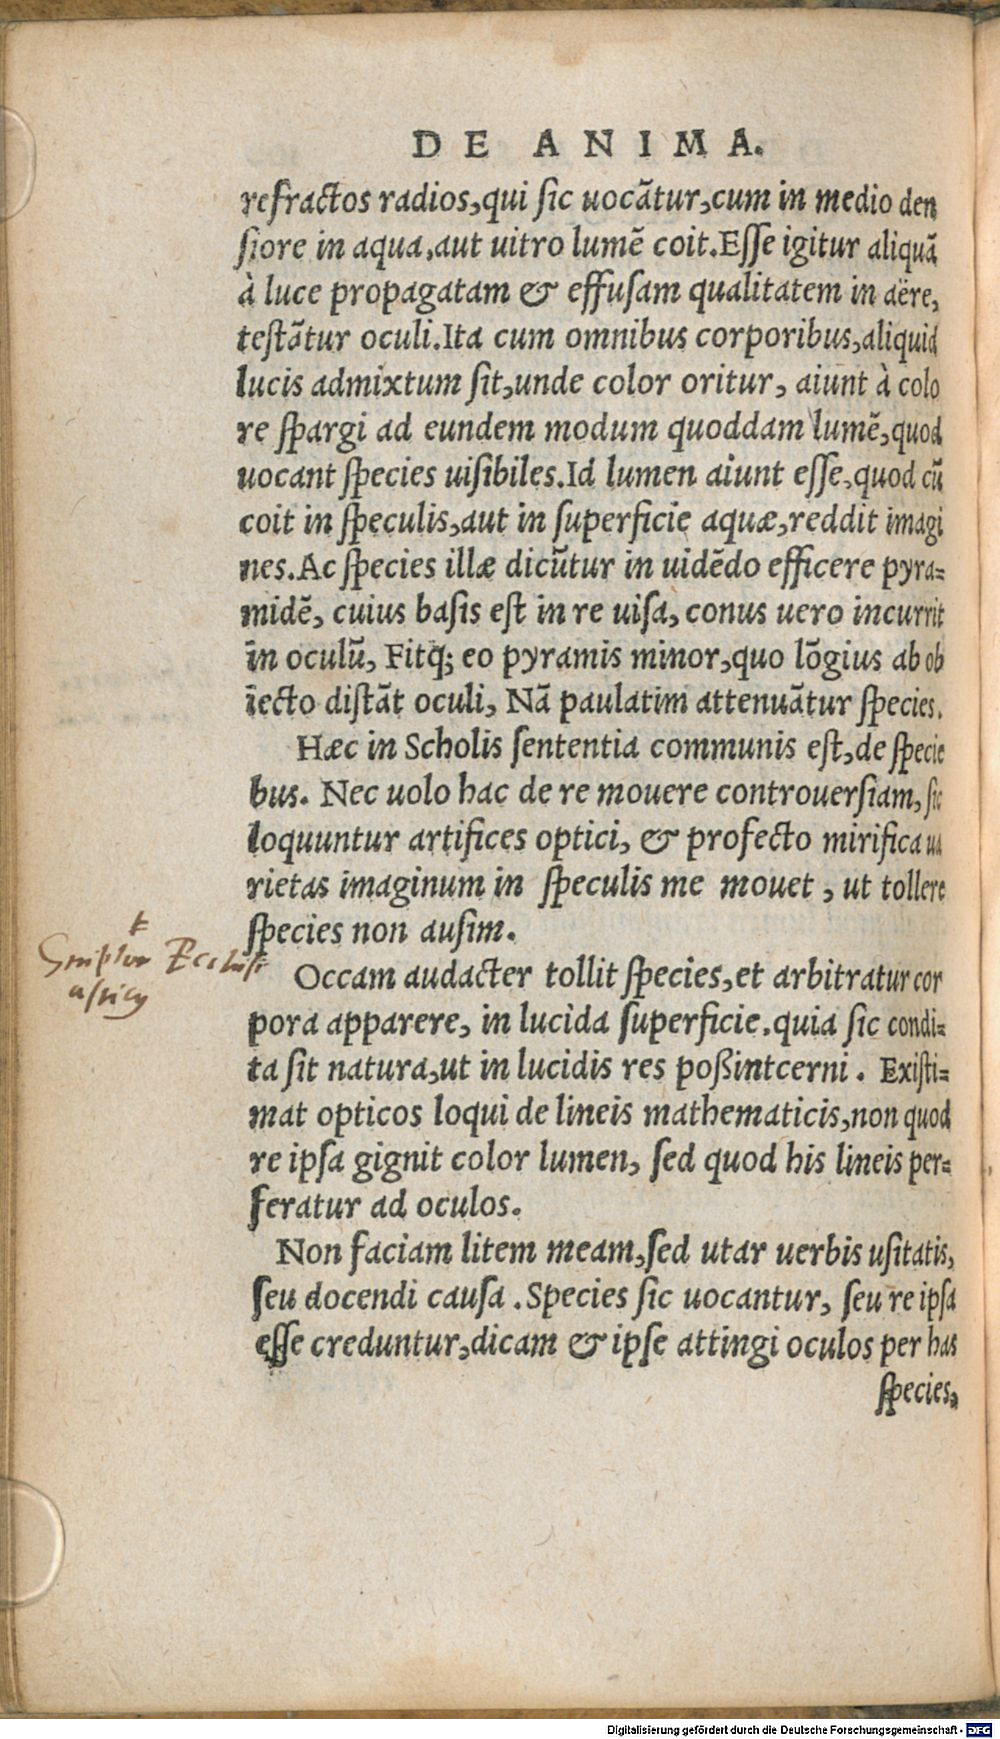 DE ANIMA.
refractos radios, qui sic uocãtur, cum in medio den
siore in aqua, aut uitro lumẽ coit. Esse igitur aliquã
à luce propagatam & effusam qualitatem in aëre,
testãtur oculi. Ita cum omnibus corporibus, aliquid
lucis admixtum sit, unde color oritur, aiunt à colo
re spargi ad eundem modum quoddam lumẽ, quod
uocant species uisibiles. Id lumen aiunt esse, quod cũ
coit in speculis, aut in superficie aquæ, reddit imagi
nes. Ac species illæ dicũtur in uidẽdo efficere pyra=
midẽ, cuius basis est in re uisa, conus uero incurrit
in oculũ, Fitq́; eo pyramis minor, quo lõgius ab ob
iecto distãt oculi, Nã paulatim attenuãtur species.
Hæc in Scholis sententia communis est, de specie
bus. Nec uolo hac de re mouere controuersiam, sic
loquuntur artifices optici, & profecto mirifica ua
rietas imaginum in speculis me mouet, ut tollere
species non ausim.
Scriptor Ecclesi
asticus
Occam audacter tollit species, et arbitratur cor
pora apparere, in lucida superficie. quia sic condi=
ta sit natura, ut in lucidis res poßintcerni. Existi=
mat opticos loqui de lineis mathematicis, non quod
re ipsa gignit color lumen, sed quod his lineis per=
feratur ad oculos.
Non faciam litem meam, sed utar uerbis usitatis,
seu docendi causa. Species sic uocantur, seu re ipsa
esse creduntur, dicam & ipse attingi oculos per has
species,
Digitalisierung gefördert durch die Deutsche Forschungsgemeinschaft - DFG